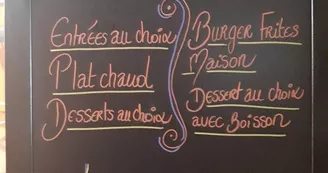 Entrées au choix
Plat chaud
Desserts au choix
Burger Frites
Maison
Dessert au choix
avec Boisson